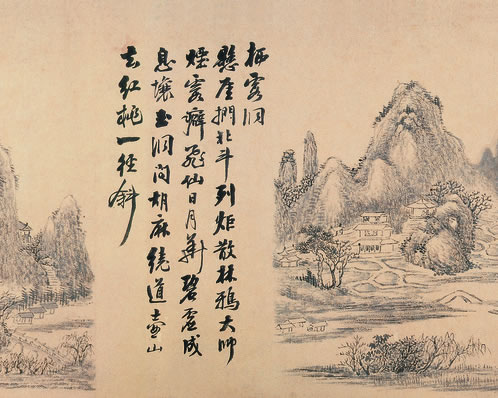 栖霞洞
懸崖捫北斗列炬散林鴉大師
煙霞癖飛仙日月華碧虛成
息壤玉洞問胡麻繞道壺山
去紅桃一徑斜